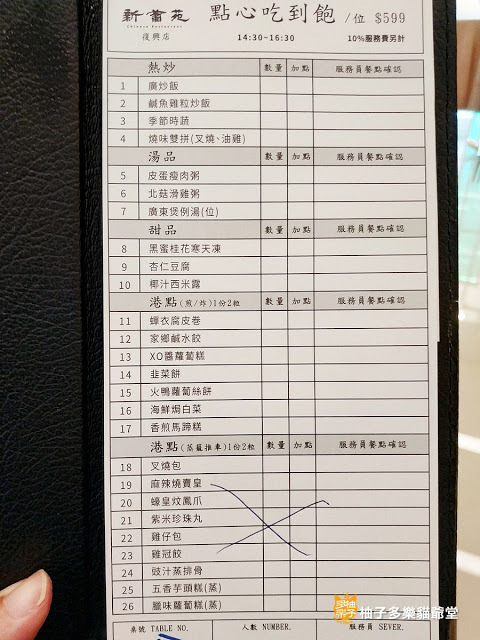 新葡苑 點心吃到飽/位 $599
Chinese Restaurant
復興店 14:30-16:30 10%服務費另計
熱炒 數量 加點 服務員餐點確認
1 廣炒飯
2 鹹魚雞粒炒飯
3 季節時蔬
4 燒味雙拼(叉燒、油雞)
湯品 數量 加點 服務員餐點確認
5 皮蛋瘦肉粥
6 北菇滑雞粥
7 廣東煲例湯(位)
甜品 數量 加點 服務員餐點確認
8 黑蜜桂花寒天凍
9 杏仁豆腐
10 椰汁西米露
港點(煎/炸)1份2粒 數量 加點 服務員餐點確認
11 蟬衣腐皮卷
12 家鄉鹹水餃
13 XO醬蘿蔔糕
14 韭菜餅
15 火鴨蘿蔔絲餅
16 海鮮焗白菜
17 香煎馬蹄糕
港點(蒸籠推車)1份2粒 數量 加點 服務員餐點確認
18 叉燒包
19 麻辣燒賣皇
20 蠔皇炆鳳爪
21 紫米珍珠丸
22 雞仔包
23 雞冠餃
24 豉汁蒸排骨
25 五香芋頭糕(蒸)
26 臘味蘿蔔糕(蒸)
桌號 TABLE NO. 人數 NUMBER. 服務員 SEVER.
柚子多樂貓爺堂